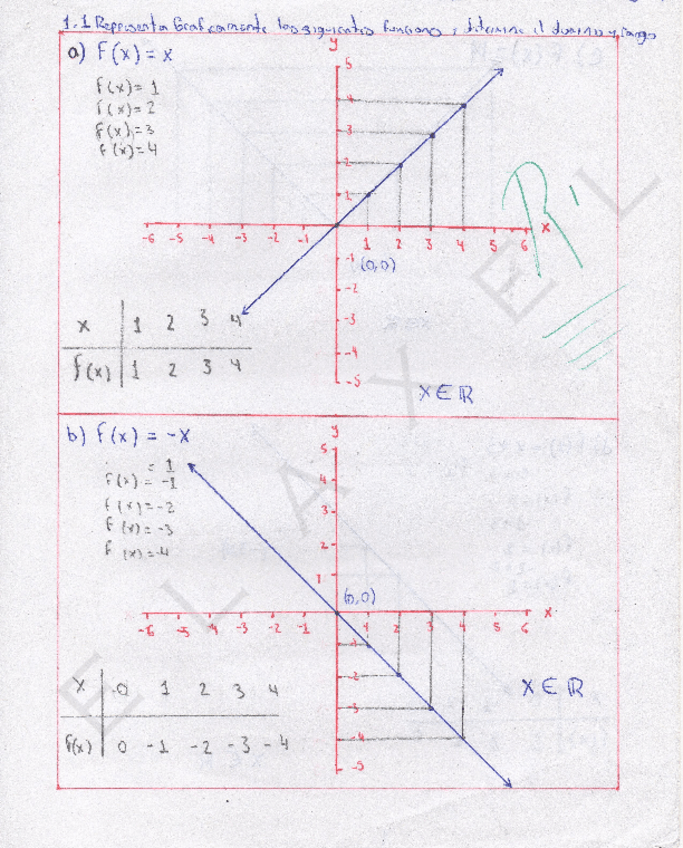 1.1 Representa Graficamente las siguientes funciones y determine el dominio y rango
a) F(x) = x
F(x) = 1
F(x) = 2
F(x) = 3
F(x) = 4
y
5
4
3
2
1
-6 -5 -4 -3 -2 -1 1 2 3 4 5 6 x
-1
(0,0)
-2
-3
-4
-5
x 1 2 3 4
F(x) 1 2 3 4
X ∈ ℝ
b) F(x) = -x
= 1
F(x) = -1
F(x) = -2
F(x) = -3
F(x) = -4
y
5
4
3
2
1
(0,0)
-6 -5 -4 -3 -2 -1 1 2 3 4 5 6 x
-1
-2
-3
-4
-5
x -0 1 2 3 4
F(x) 0 -1 -2 -3 -4
X ∈ ℝ
E L A X E L